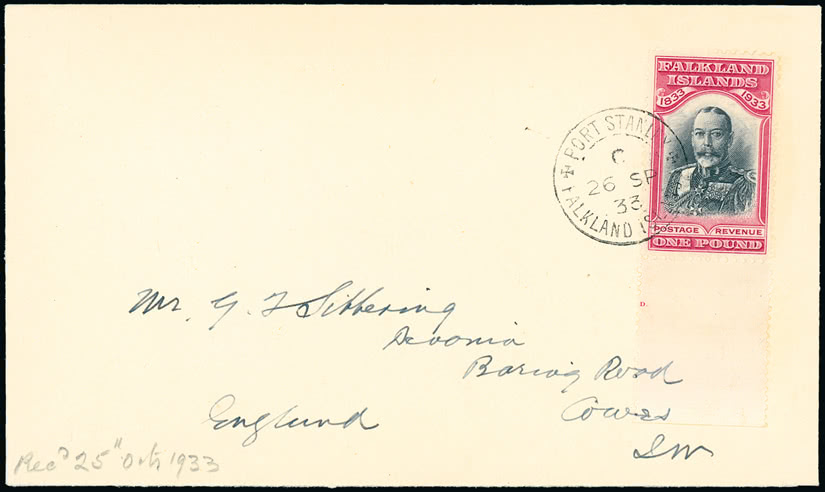 FALKLAND
ISLANDS
1833 1933
POSTAGE REVENUE
ONE POUND
PORT STANLEY
C
26 SP
33
FALKLAND IS
D.
Mr. G. F Sibbering
Devonia
Baring Road
Cowes
England
IW
Recd 25" Oct 1933